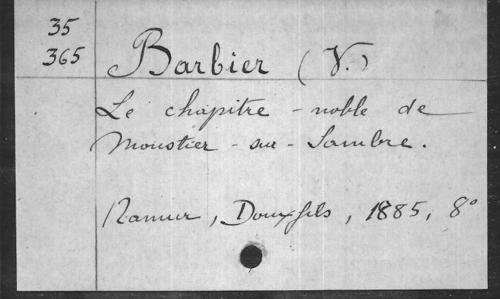 35
365
Barbier (V.)
Le chapitre - noble de
Moustier - sur - Sambre.
Namur, Douxfils, 1885, 8°